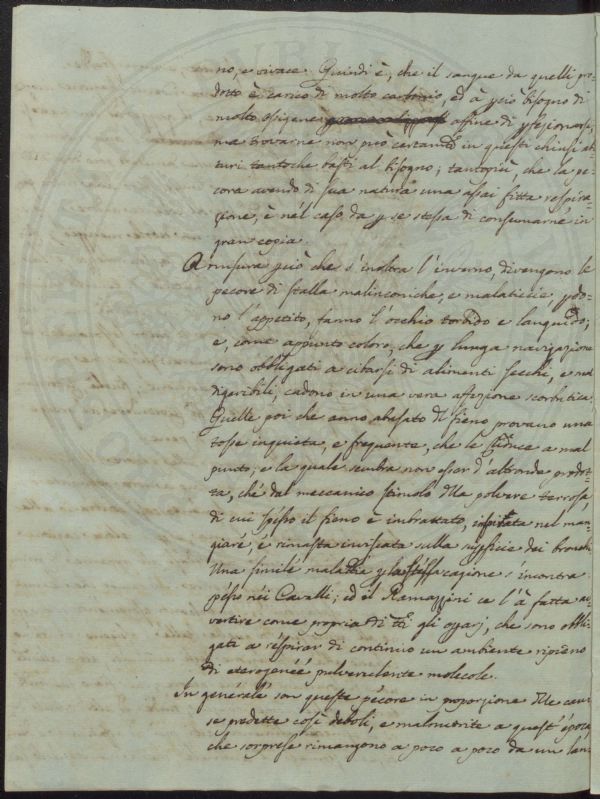 no, e vivace. Quindi è, che il sangue da quelli pro-
dotto è carico di molto carbonio, ed à pciò bisogno di
molto ossigene affine di pfezionarsi,
ma trovarne non può certamte in questi chiusi at-
turi tantoche basti al bisogno; tantopiù, che la pe-
cora avendo di sua natura una assai fitta respira-
zione, è nel caso da p se stessa di consumarne in
gran copia.
A misura pciò che s'inoltra l'inverno, divengono le
pecore di stalla malinconiche, e malaticcie, pdo-
no l'appetito, fanno l'occhio torbido e languido;
e, come appunto coloro, che p lunga navigazione
sono obbligati a cibarsi di alimenti secchi, e mal
digeribili, cadono in una vera affezione scorbutica.
Quelle poi che anno abusato di fieno provano una
tosse inquieta, e frequente, che le riduce a mal
punto, e la quale sembra non esser d'altronde prodot-
ta, ché dal meccanico stimolo dlle polvere terrosa,
di cui spesso il fieno è imbrattato, inspirata nel man-
giare, e rimasta invischiata sulla supficie dei bronchi.
Una simile malattia p la stessa cagione s'incontra
spesso nei Cavalli; ed il Ramazzini ce l'à fatta av-
vertire come propria di tti gli operarj, che sono obbli-
gati a respirar di continuo un ambiente ripieno
di eterogenèe pulverulente molecole.
In generale son queste pecore in proporzione dlle cau-
se predette così deboli, e malnutrite a quest'época,
che sorprese rimangono a poco a poco da un lan-